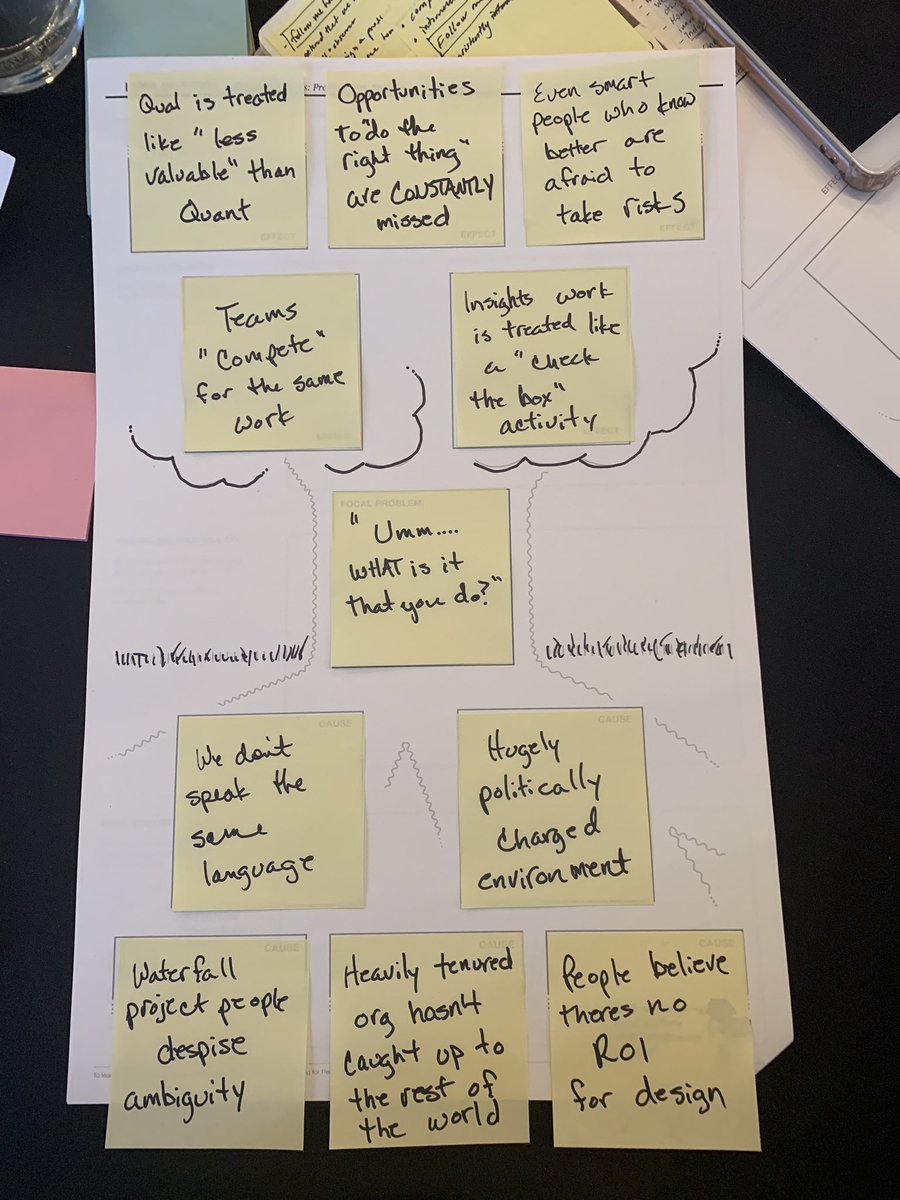 follow me ho
Follow m
s: Pro
Qual is treated
like "less
valuable" than
Quant
EFFECT
Opportunities
to "do the
right thing"
are CONSTANTLY
missed
EFFECT
Even smart
people who know
better are
afraid to
take risks
EFFECT
Teams
"Compete"
for the same
work
EFFECT
Insights work
is treated like
a "check
the box"
activity
EFFECT
FOCAL PROBLEM:
"Umm....
WHAT is it
that you do?"
CAUSE
We don't
speak the
same
language
CAUSE
Hugely
politically
charged
environment
CAUSE
Waterfall
project people
despise
ambiguity
CAUSE
Heavily tenured
org hasn't
caught up to
the rest of
the world
CAUSE
People believe
theres no
ROI
for design